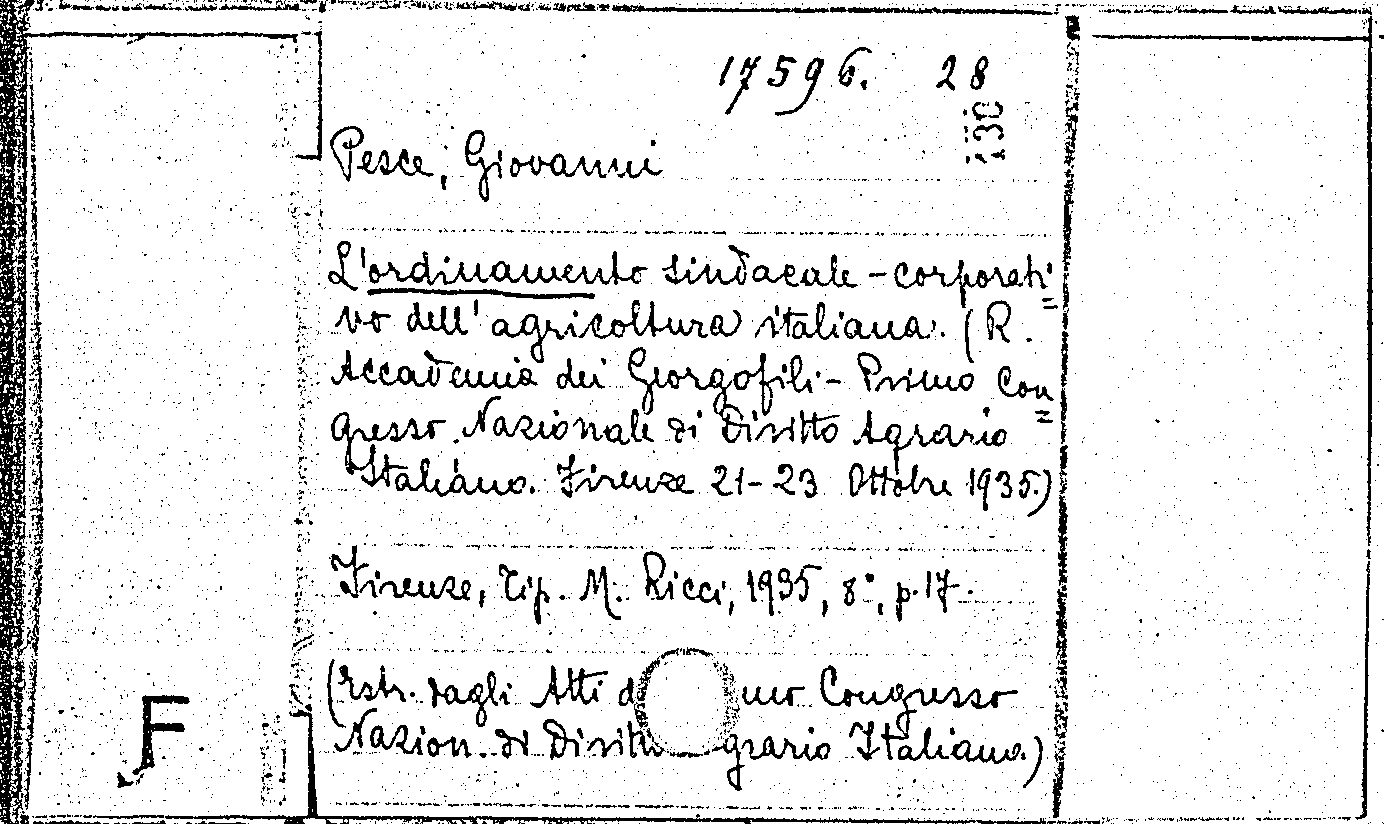 17596. 28
130
Pesce, Giovanni
L'ordinamento sindacale - corporati=
vo dell'agricoltura italiana. (R.
Accademia dei Georgofili - Primo Con=
gresso Nazionale di Diritto Agrario
Italiano. Firenze 21-23 Ottobre 1935.)
Firenze, Tip. M. Ricci, 1935, 8°, p. 17.
(Estr. dagli Atti d mo Congresso
Nazion. di Diritto grario Italiano.)
F